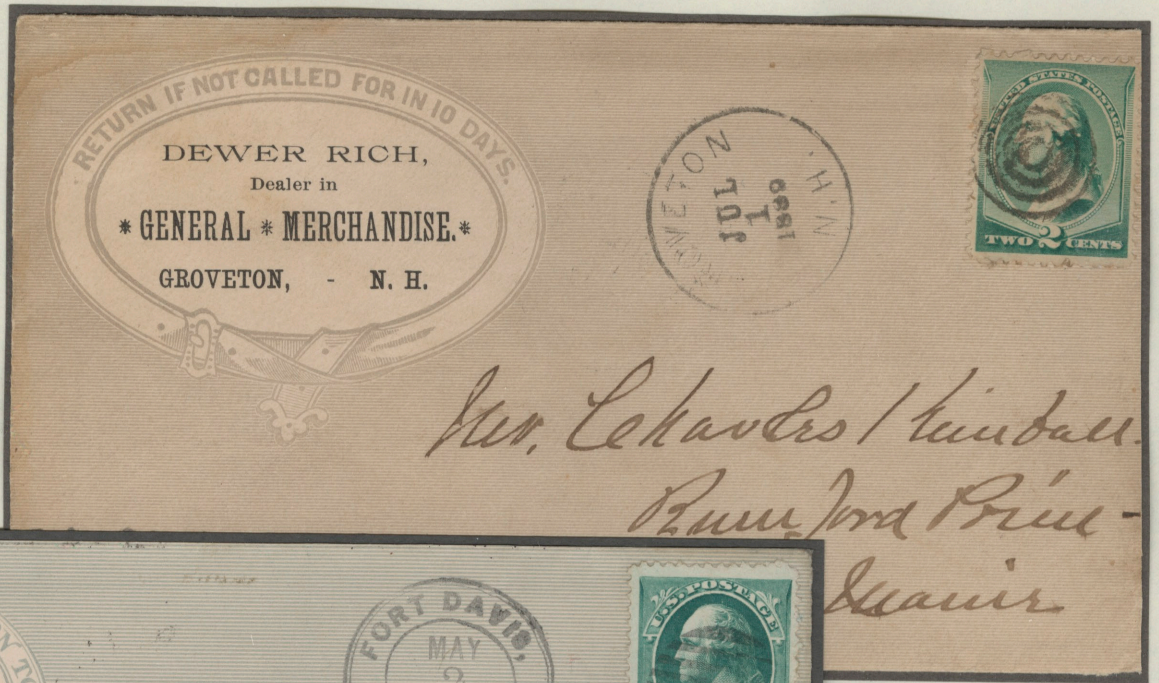 RETURN IF NOT CALLED FOR IN 10 DAYS.
DEWER RICH,
Dealer in
* GENERAL * MERCHANDISE. *
GROVETON, - N. H.
GROVETON N.H.
JUL
1
1889
UNITED STATES POSTAGE
TWO 2 CENTS
Mr. Charles Kimball.
Rumford Point -
Maine
FORT DAVIS,
MAY
U.S. POSTAGE